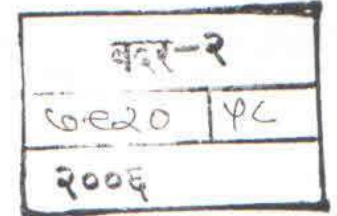 बदर-२
७९२० | ५८
२००६